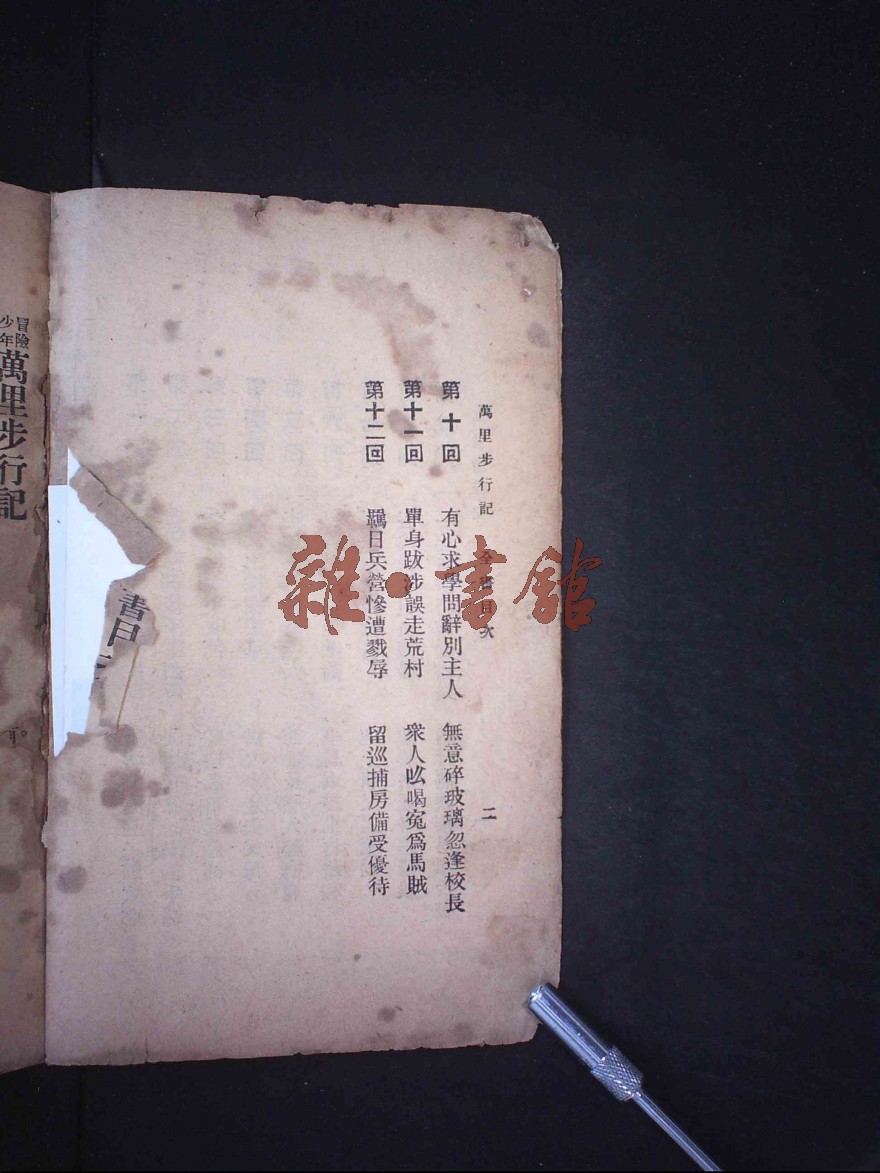 萬里步行記 全書目次 二
第十回 有心求學問辭別主人 無意碎玻璃忽逢校長
第十一回 單身跋涉誤走荒村 衆人吆喝寃爲馬賊
第十二回 羈日兵營慘遭戮辱 留巡捕房備受優待
書目
冒險
少年
萬里步行記
雜·書館